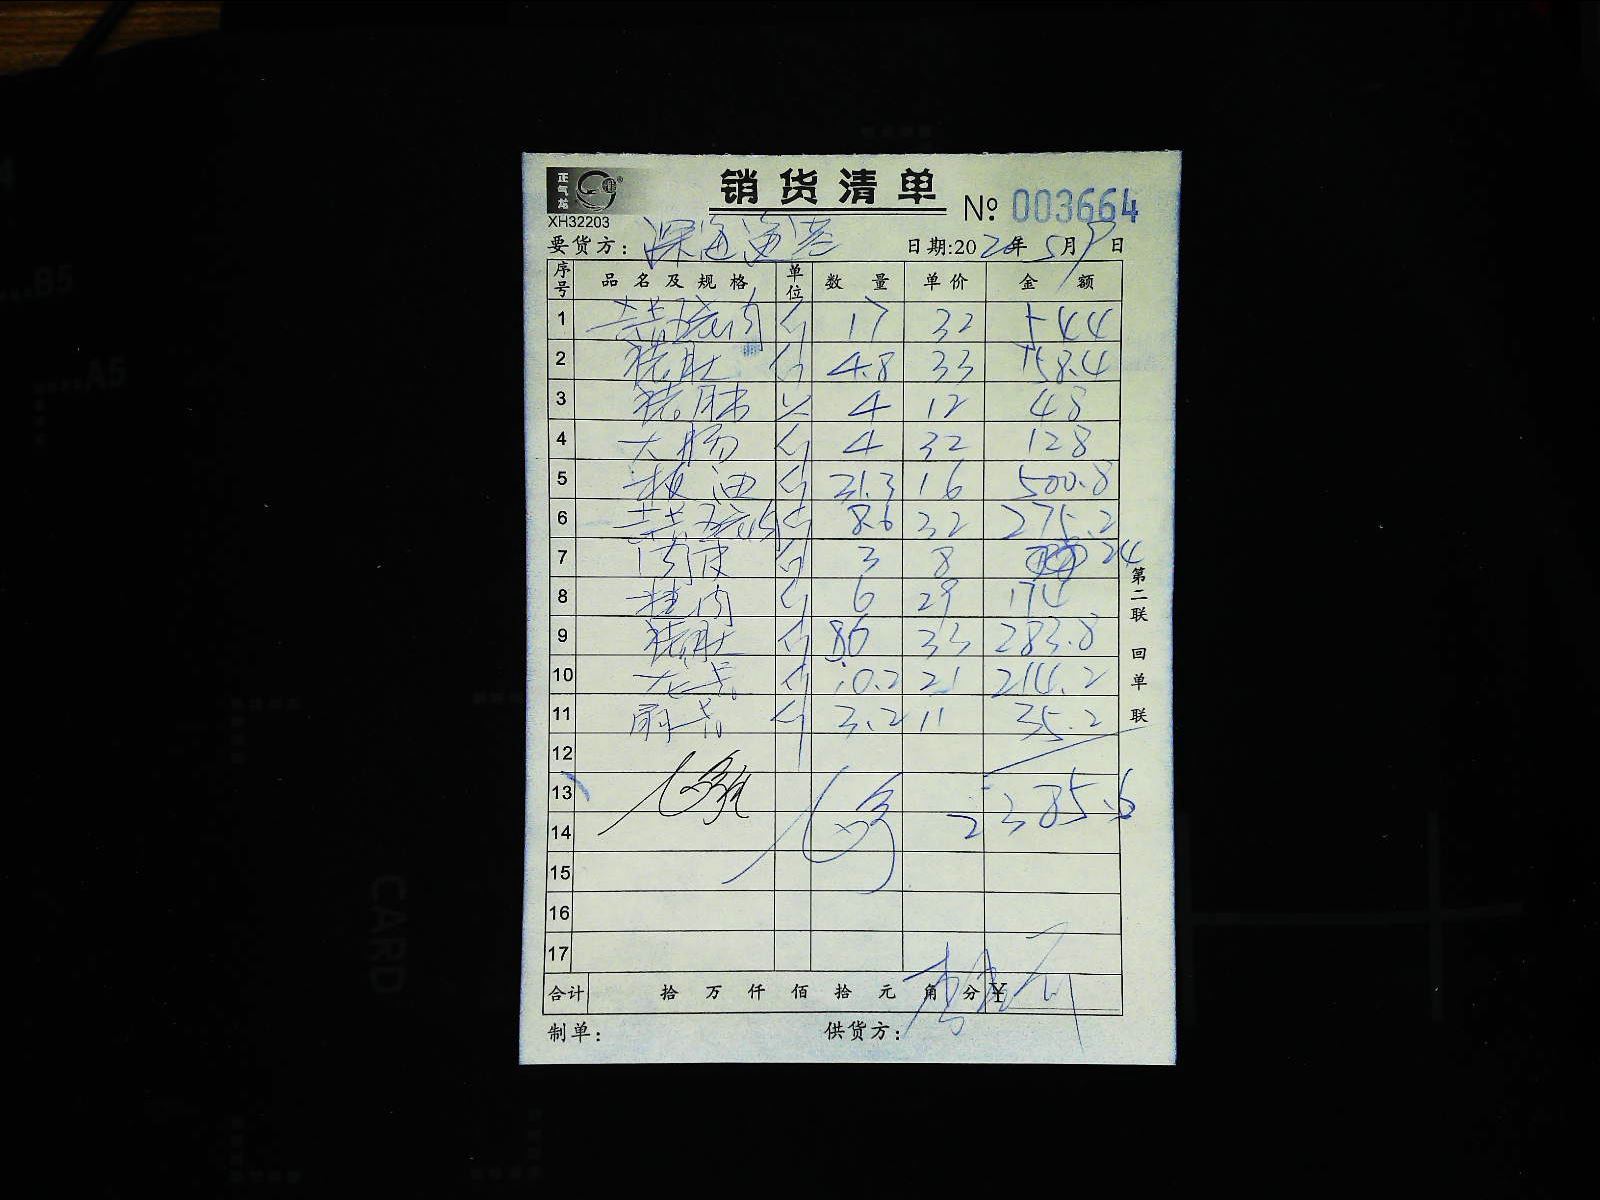 正气龙
XH32203
销货清单
№ 003664
要货方:
日期:202 年 5月9日
序号 品名及规格 单位 数量 单价 金额
1 斤 17 32 544
2 猪肚 斤 4.8 33 158.4
3 猪 只 4 12 48
4 大肠 斤 4 32 128
5 板油 斤 31.3 16 500.8
6 斤 8.6 32 275.2
7 肉皮 斤 3 8 24
8 肉 斤 6 29 174
9 猪肚 斤 8.6 33 283.8
10 龙骨 斤 10.2 21 214.2
11 骨 斤 3.2 11 35.2
12
13 2385.6
14
15
16
17
合计 拾 万 仟 佰 拾 元 角 分 ¥
制单: 供货方:
第二联 回单联
B5
A5
CARD